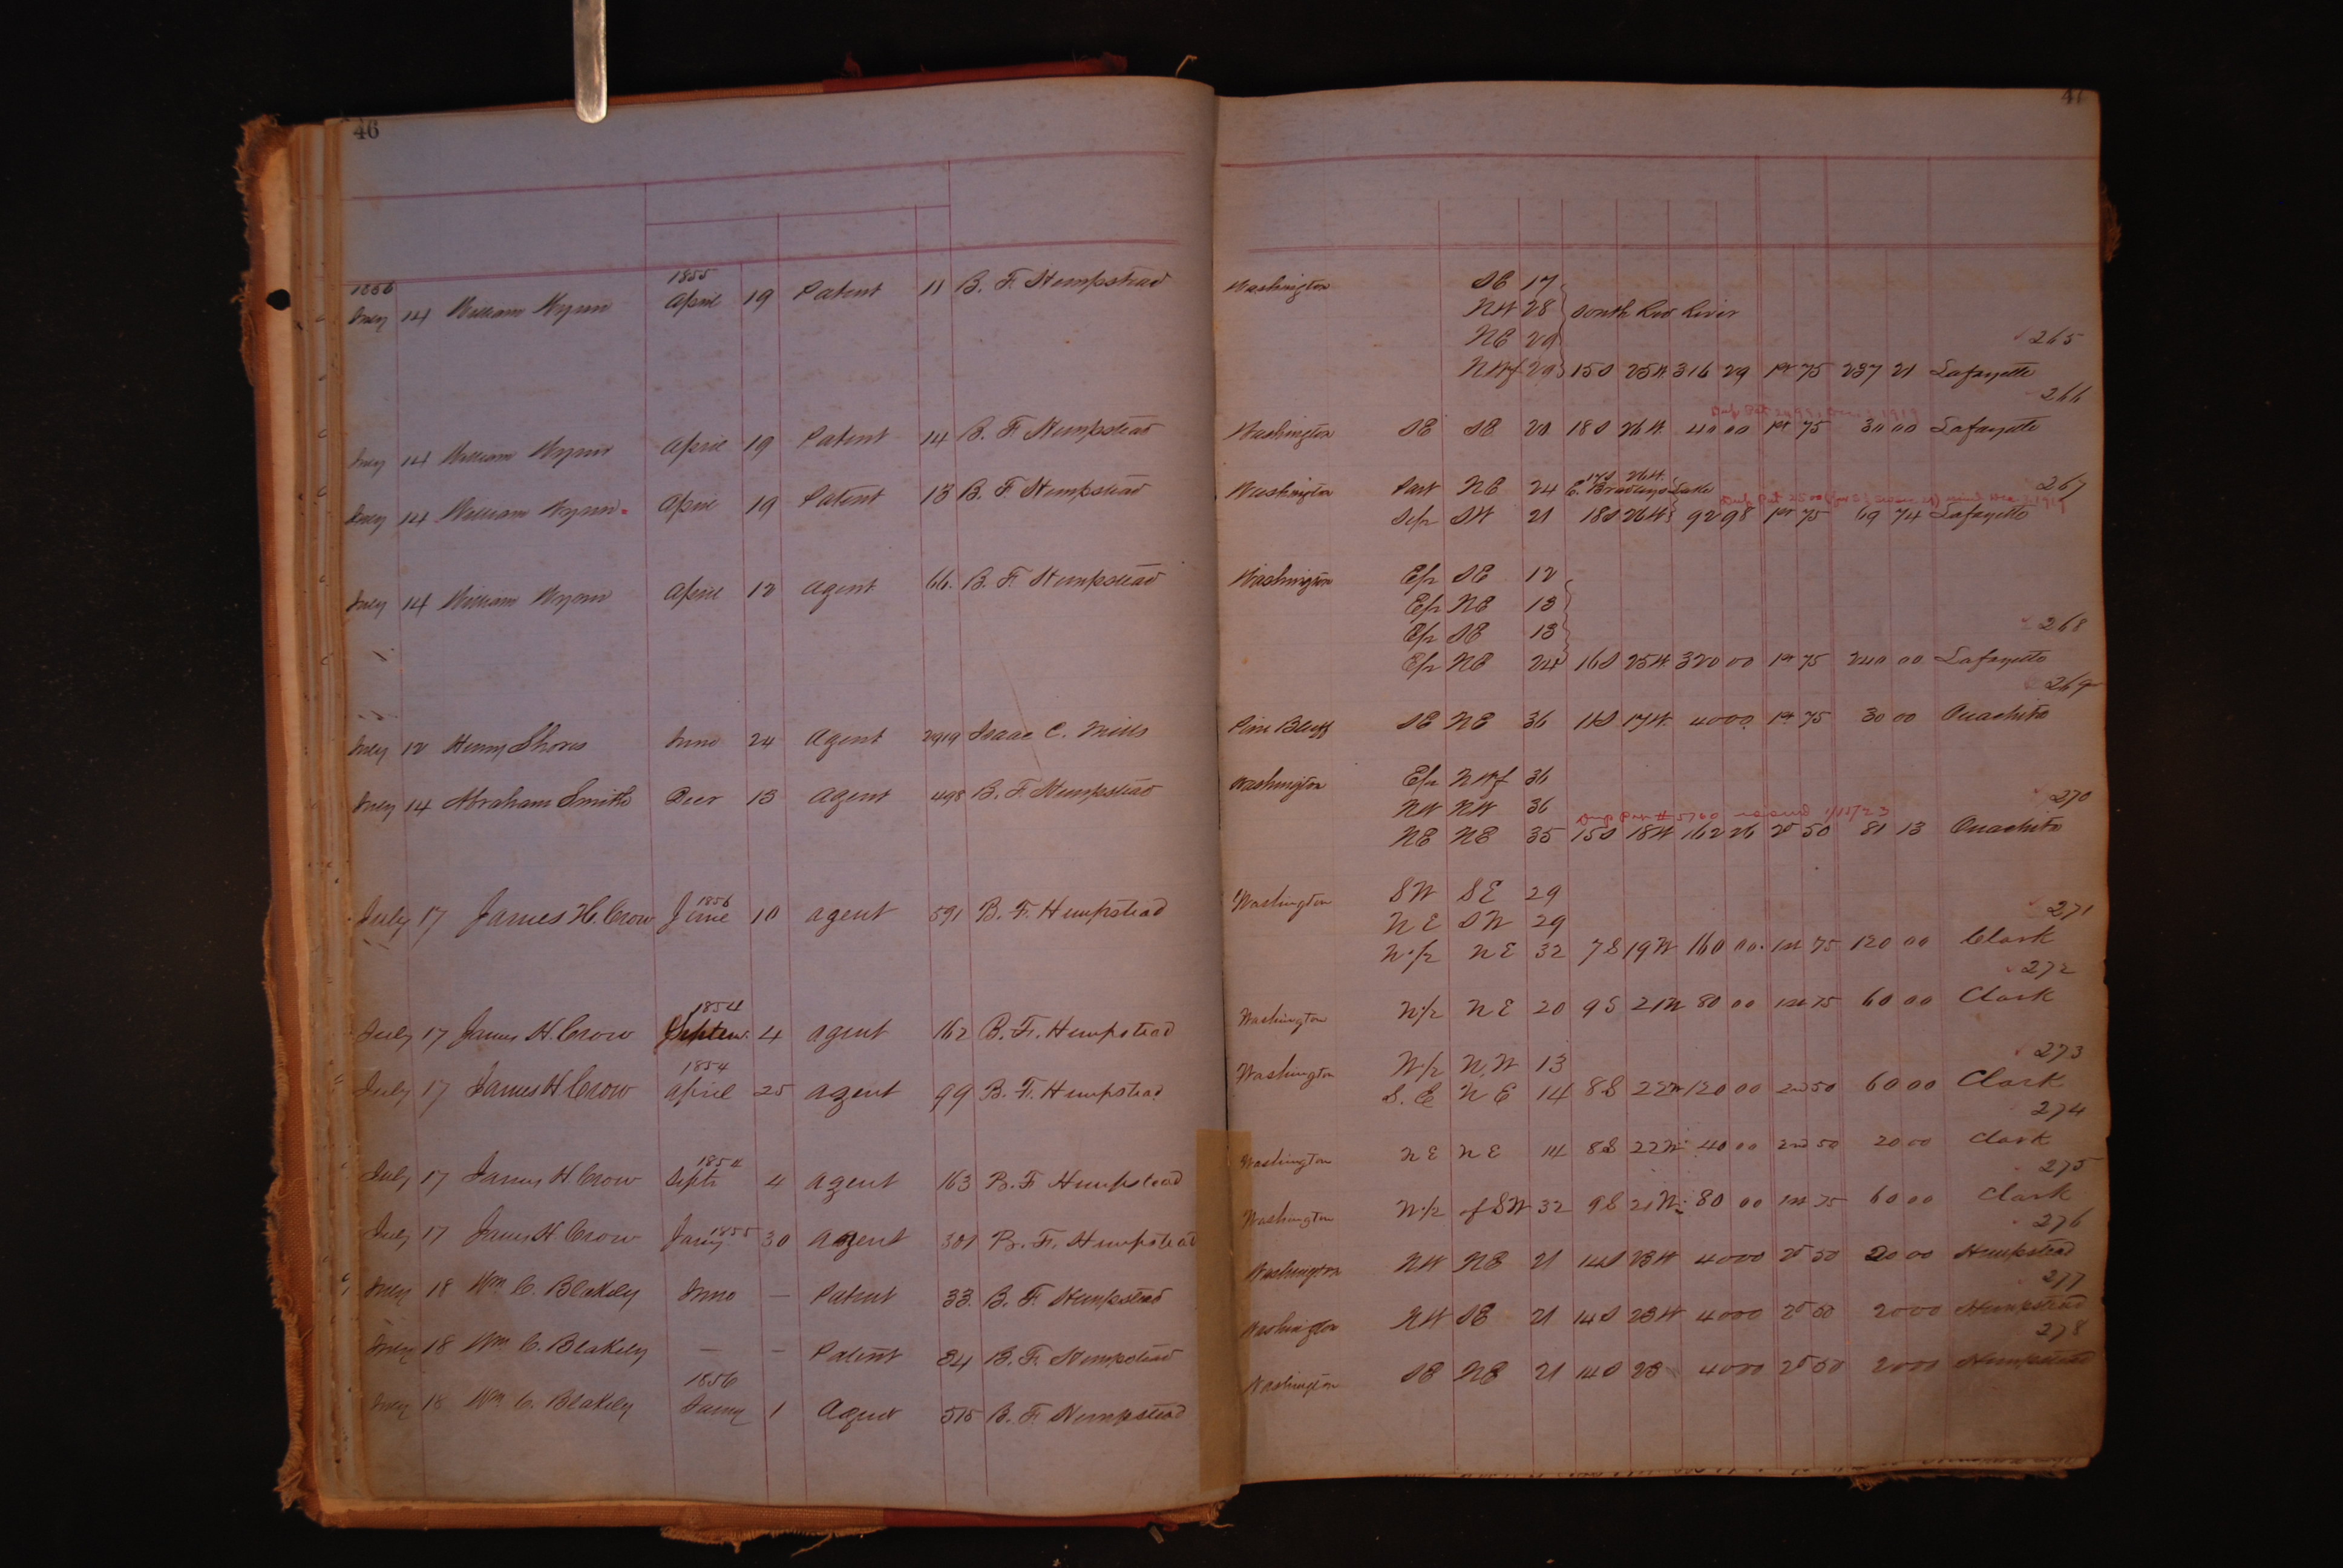 46
1856 1855
July 14 William Wynn April 19 Patent 11 B. F. Hempstead
July 14 William Wynn April 19 Patent 14 B. F. Hempstead
July 14 William Wynn April 19 Patent 13 B. F. Hempstead
July 14 William Wynn April 12 Agent 66. B. F. Hempstead
July 12 Henny Shores June 24 Agent 2919 Isaac C. Mills
July 14 Abraham Smith Decr 13 Agent 498 B. F. Hempstead
1856
July 17 James H. Crow June 10 agent 591 B. F. Hempstead
1854
July 17 James H. Crow Septem. 4 agent 162 B. F. Hempstead
1854
July 17 James H Crow April 25 agent 99 B. F. Hempstead
1854
July 17 James H Crow Septr 4 agent 163 B. F. Hempstead
July 17 James H. Crow Jany. 1855 30 agent 301 B. F. Hempstead
July 18 Wm. C. Blakely June — Patent 33. B. F. Hempstead
July 18 Wm C. Blakely — — Patent 34 B. F. Hempstead
1856
July 18 Wm C. Blakely Jany 1 Agent 515 B. F. Hempstead
47
Washington SE 17
NW 28 South Red River
NE 29
265
NWf 29 15S 25W. 316 29 1st 75 237 21 Lafayette
266
Washington SE SE 20 18S 26W. 40 00 1st 75 30 00 Lafayette
17S 26W.
267
Washington Part NE 24 E. Bradleys Lake
S½ SW 21 18S 26W 92 98 1st 75 69 74 Lafayette
Washington E½ SE 12
E½ NE 13
E½ SE 13
268
E½ NE 24 16S 25W. 320 00 1st 75 240 00 Lafayette
269
Pine Bluff SE NE 36 11S 17W. 40 00 1st 75 30 00 Ouachita
Washington E½ NWf 36
NW NW 36
270
Dup Pat # 5760 issued 1/15/23
NE NE 35 15S 18W 162 26 2d 50 81 13 Ouachita
Washington SW SE 29
NE SW 29
271
N½ NE 32 7S 19W 160 00. 1st 75 120 00 Clark
272
Washington N½ NE 20 9S 21W 80 00 1st 75 60 00 Clark
273
Washington W½ N.W 13
S. E NE 14 8S 22W 120 00 2nd 50 60 00 Clark
274
Washington NE NE 14 8S 22W 40 00 2nd 50 20 00 Clark
275
Washington W½ of SW 32 9S 21W. 80 00 1st 75 60 00 Clark
276
Washington NW NE 21 14S 23W 40 00 2d 50 20 00 Hempstead
277
Washington NW SE 21 14S 23W 40 00 2d 50 20 00 Hempstead
278
Washington SE NE 21 14S 23 40 00 2d 50 20 00 Hempstead